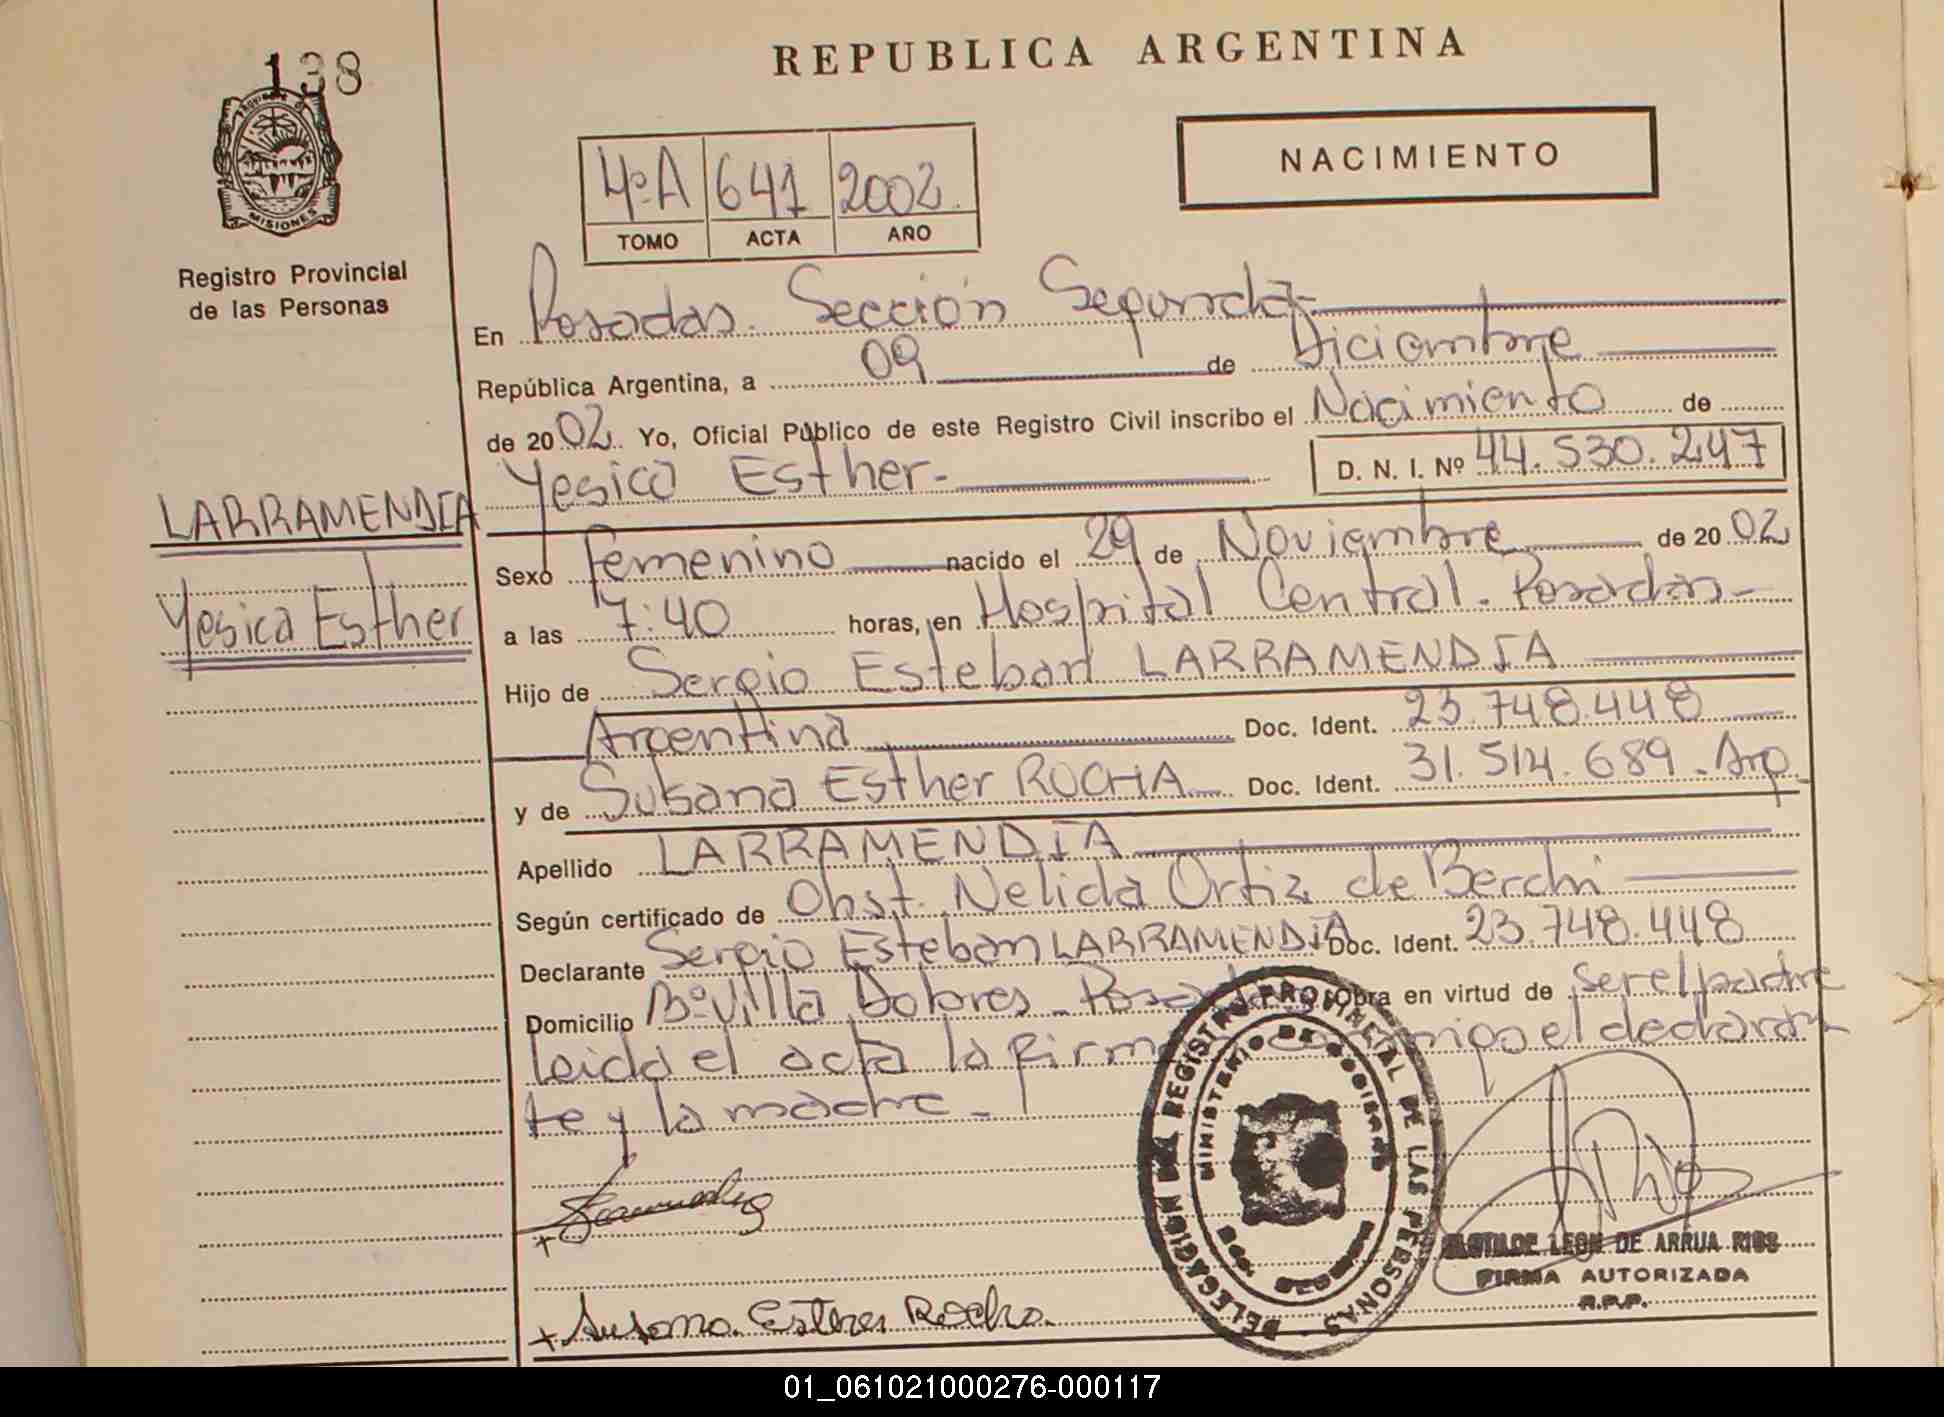 138
REPUBLICA ARGENTINA
MISIONES
Registro Provincial
de las Personas
4º A 641 2002.
TOMO ACTA AÑO
NACIMIENTO
En Posadas. Sección Segunda-
República Argentina, a 09 de Diciembre
de 2002 Yo, Oficial Público de este Registro Civil inscribo el Nacimiento de
Yesica Esther- D. N. I. Nº 44.530.247
LARRAMENDIA
Yesica Esther
Sexo Femenino nacido el 29 de Noviembre de 2002
a las 7:40 horas, en Hospital Central. Posadas-
Hijo de Sergio Esteban LARRAMENDIA
Argentina Doc. Ident. 23.748.448
y de Susana Esther ROCHA Doc. Ident. 31.514.689. Arg.
Apellido LARRAMENDIA
Según certificado de Obst. Nelida Ortiz de Berchi
Declarante Sergio Esteban LARRAMENDIA Doc. Ident. 23.748.448
Domicilio Bº Villa Dolores. Obra en virtud de ser el padre
leida el acta la firma el declaran
te y la madre-
DELEGACION DEL REGISTRO PROVINCIAL DE LAS PERSONAS
MINISTERIO DE GOBIERNO
+ Susana Esther Rocha.
CLOTILDE LEON DE ARRUA RIOS
FIRMA AUTORIZADA
R.P.P.
01_061021000276-000117